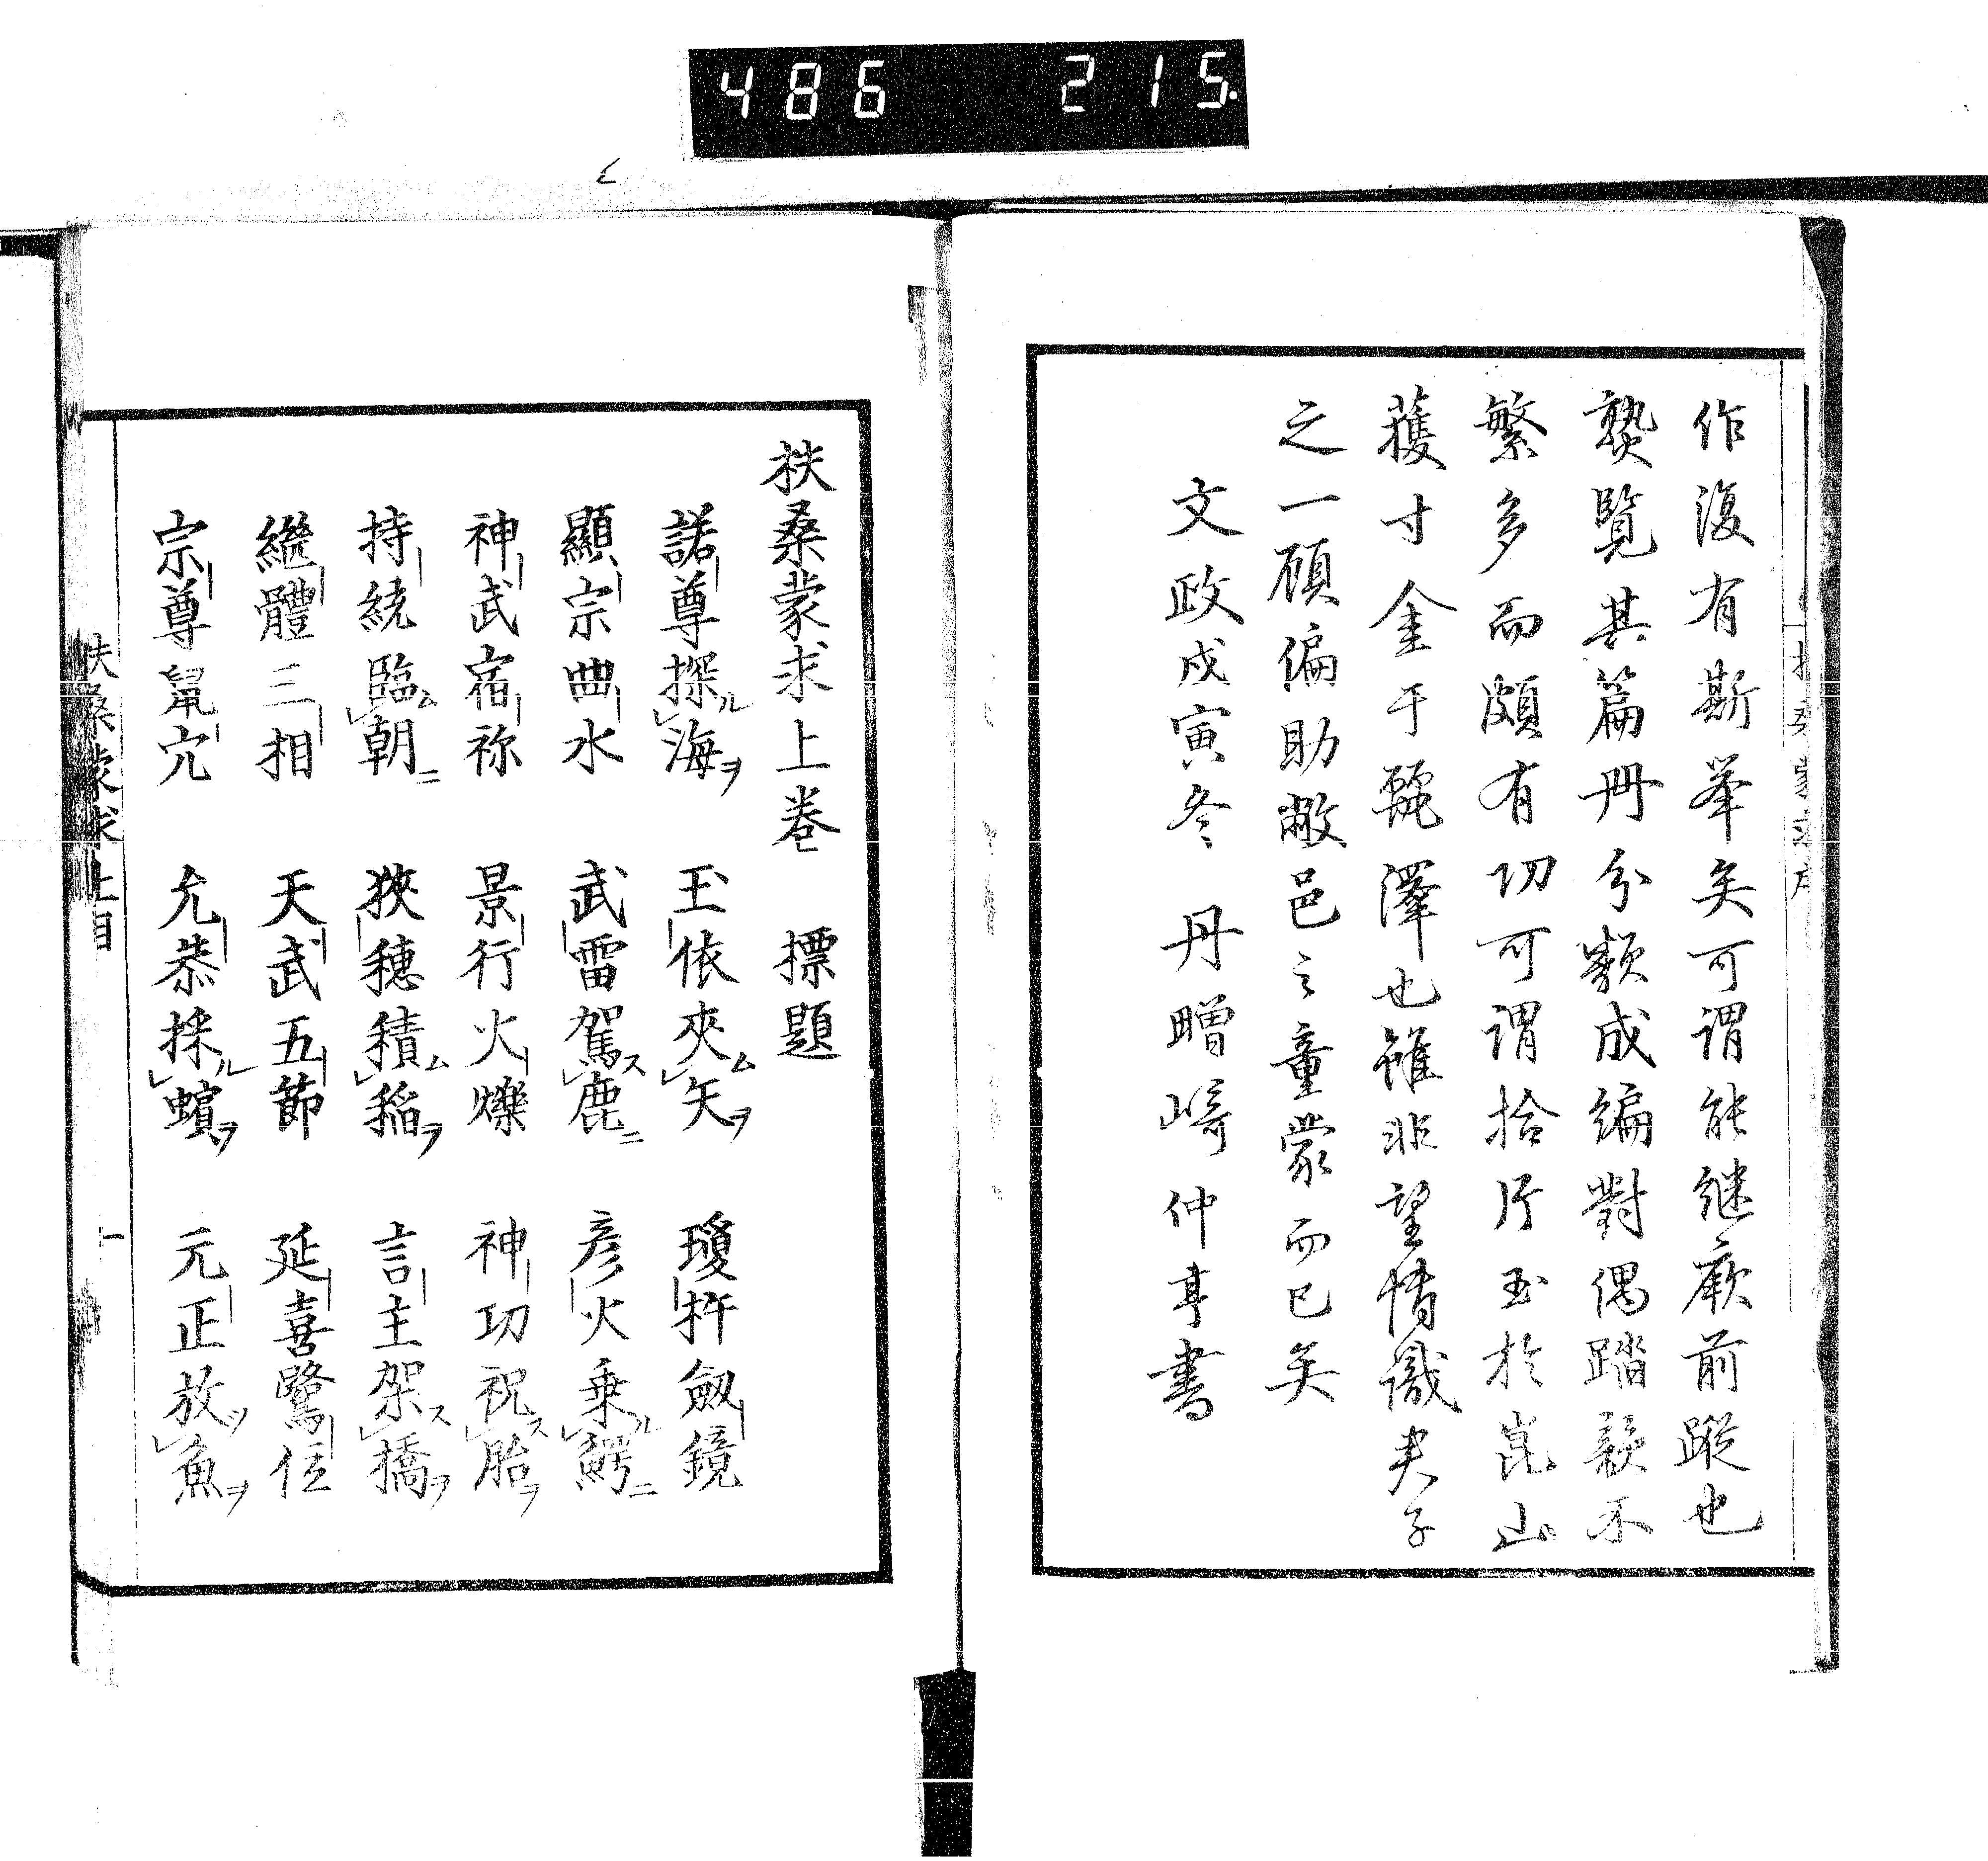 486 215.
作復有斯挙矣可謂能継厥前蹤也
熟覧其篇冊分類成編對偶踏韻不
繁多而頗有功可謂拾片玉於崑山
獲寸金于麗澤也雖非望博識夫子
之一顧偏助敝邑之童蒙而已矣
文政戊寅冬 丹 崎仲亨書
扶桑蒙求上巻 標題
諾尊探ル海ヲ 玉依夾ム矢ヲ 瓊杵劔鏡
顯宗曲水 武雷駕ス鹿ニ 彦火乗ル鰐ニ
神武宿祢 景行火爍 神功祝ス胎ヲ
持統臨ム朝ニ 狹穂積ム稲ヲ 言主架ス橋ヲ
繼體三相 天武五節 延喜鷺位
宗尊鼠穴 允恭採ル蠙ヲ 元正放ツ魚ヲ
扶桑蒙求上目 一